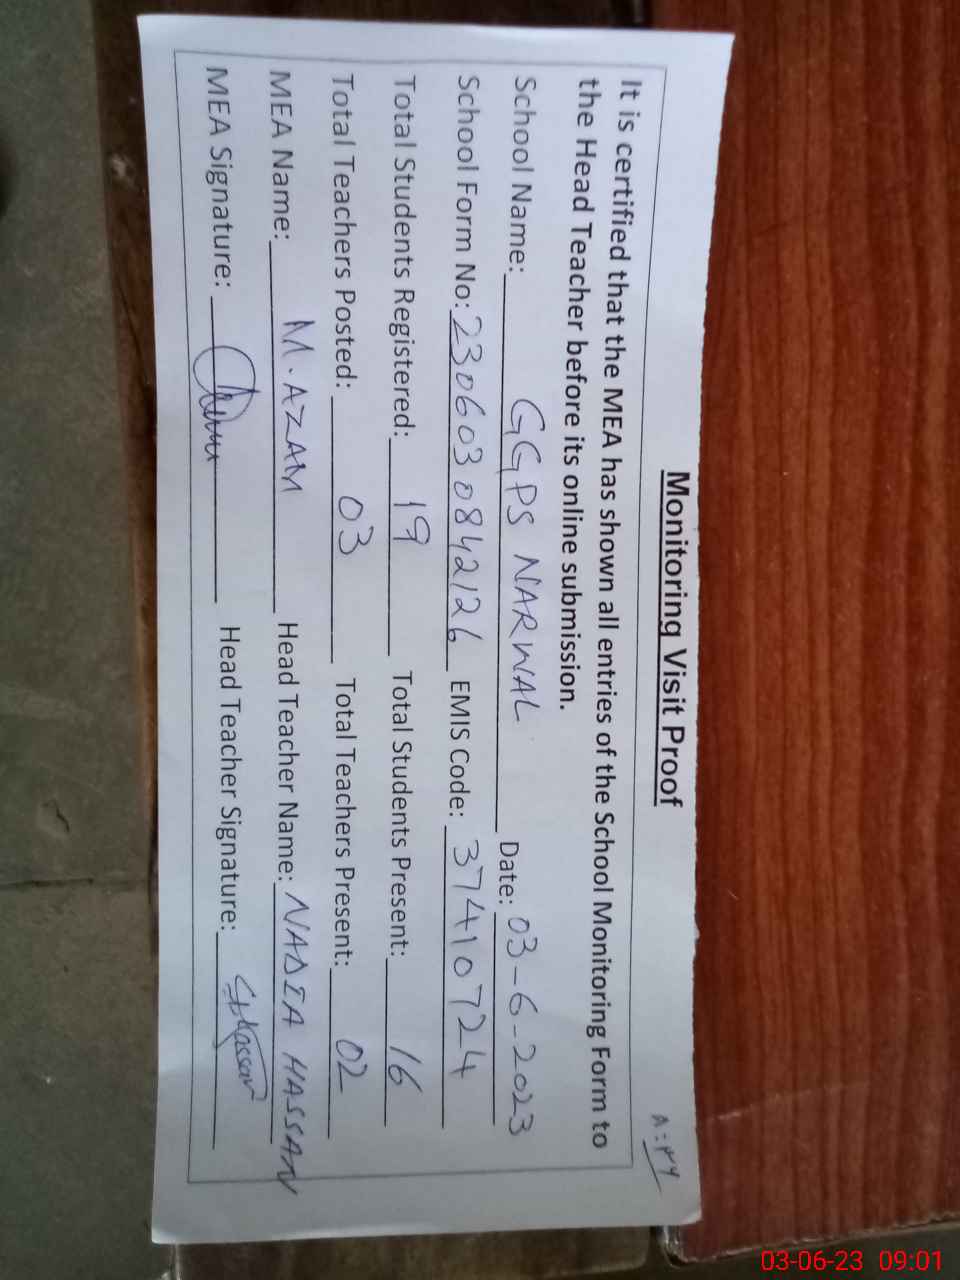 Monitoring Visit Proof
It is certified that the MEA has shown all entries of the School Monitoring Form to
the Head Teacher before its online submission.
School Name: GGPS NARWAL Date: 03-6-2023
School Form No: 2306030842126 EMIS Code: 37410724
Total Students Registered: 19 Total Students Present: 16
Total Teachers Posted: 03 Total Teachers Present: 02
MEA Name: M. AZAM Head Teacher Name: NADIA HASSAN
MEA Signature: Head Teacher Signature:
03-06-23 09:01